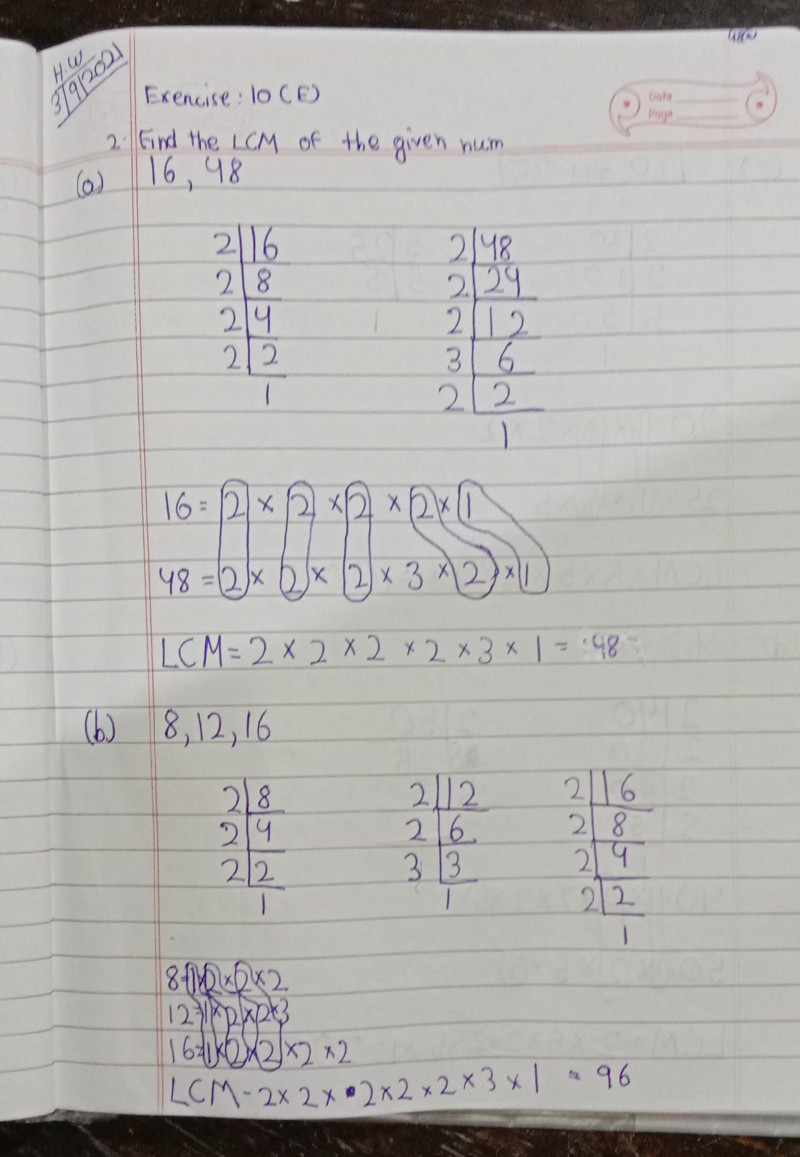 H.W
3/9/2021
Exercise: 10 (E)
Date
Page
2. Find the LCM of the given num
(a) 16, 48
2|16 2|48
2|8 2|24
2|4 2|12
2|2 3|6
1 2|2
1
16 = 2 × 2 × 2 × 2 × 1
48 = 2 × 2 × 2 × 3 × 2 × 1
LCM = 2 × 2 × 2 × 2 × 3 × 1 = 48
(b) 8, 12, 16
2|8 2|12 2|16
2|4 2|6 2|8
2|2 3|3 2|4
1 1 2|2
1
8=1×2×2×2
12=1×2×2×3
16=1×2×2×2×2
LCM - 2 × 2 × 2 × 2 × 2 × 3 × 1 = 96